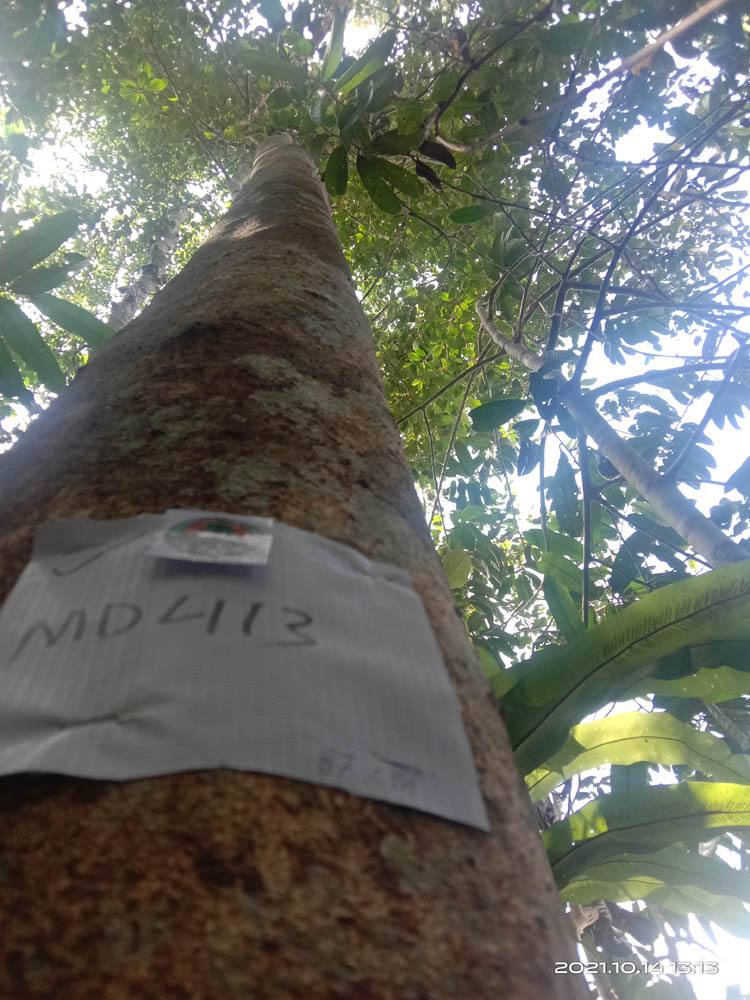 MD4113
87 CM
2021.10.14 13:13